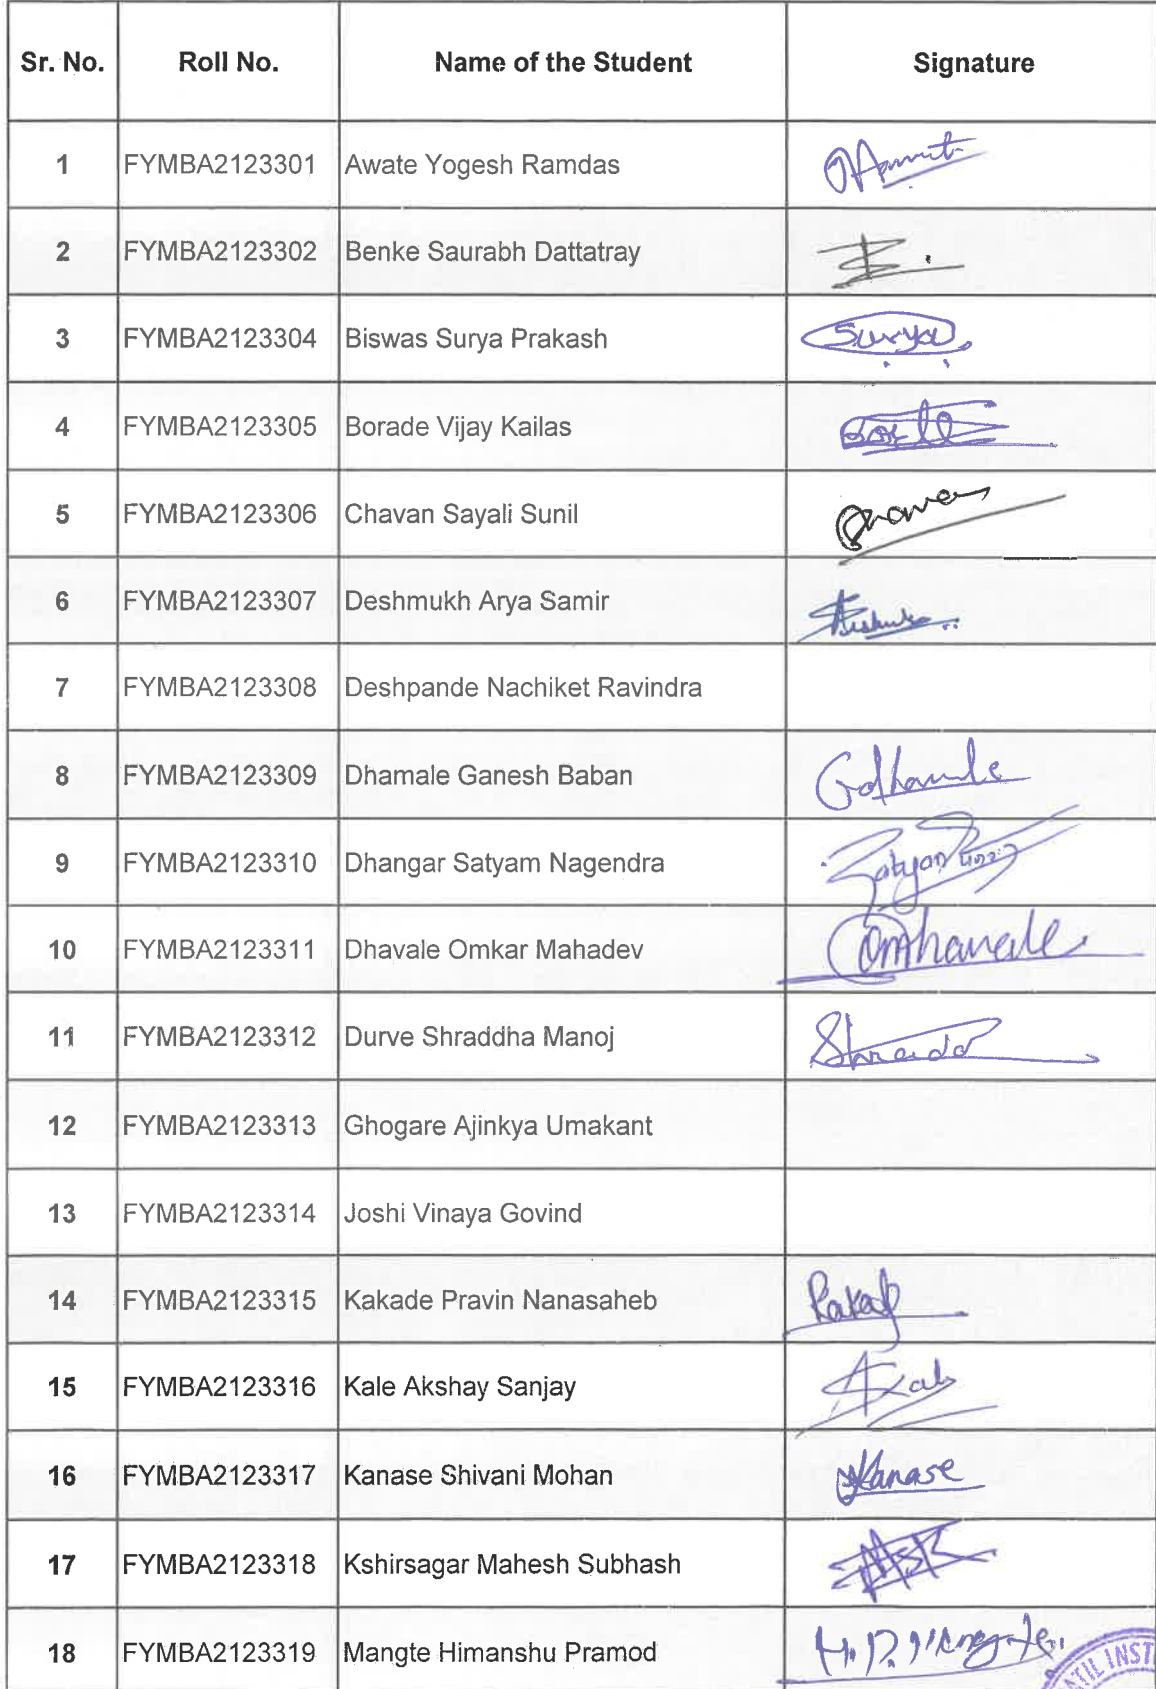 Sr. No. Roll No. Name of the Student Signature
1 FYMBA2123301 Awate Yogesh Ramdas
2 FYMBA2123302 Benke Saurabh Dattatray
3 FYMBA2123304 Biswas Surya Prakash Surya
4 FYMBA2123305 Borade Vijay Kailas
5 FYMBA2123306 Chavan Sayali Sunil
6 FYMBA2123307 Deshmukh Arya Samir
7 FYMBA2123308 Deshpande Nachiket Ravindra
8 FYMBA2123309 Dhamale Ganesh Baban
9 FYMBA2123310 Dhangar Satyam Nagendra
10 FYMBA2123311 Dhavale Omkar Mahadev
11 FYMBA2123312 Durve Shraddha Manoj
12 FYMBA2123313 Ghogare Ajinkya Umakant
13 FYMBA2123314 Joshi Vinaya Govind
14 FYMBA2123315 Kakade Pravin Nanasaheb
15 FYMBA2123316 Kale Akshay Sanjay
16 FYMBA2123317 Kanase Shivani Mohan Kanase
17 FYMBA2123318 Kshirsagar Mahesh Subhash
18 FYMBA2123319 Mangte Himanshu Pramod
TIL INSTI